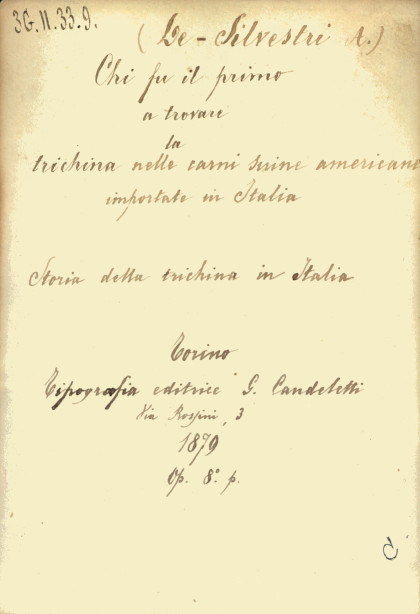 3G.11.33.9.
(De-Silvestri A.)
Chi fu il primo
a trovare
la
trichina nelle carni suine americane
importate in Italia
Storia della trichina in Italia
Torino
Tipografia editrice G. Candeletti
Via Rossini, 3
1879
Op. 8º. p.